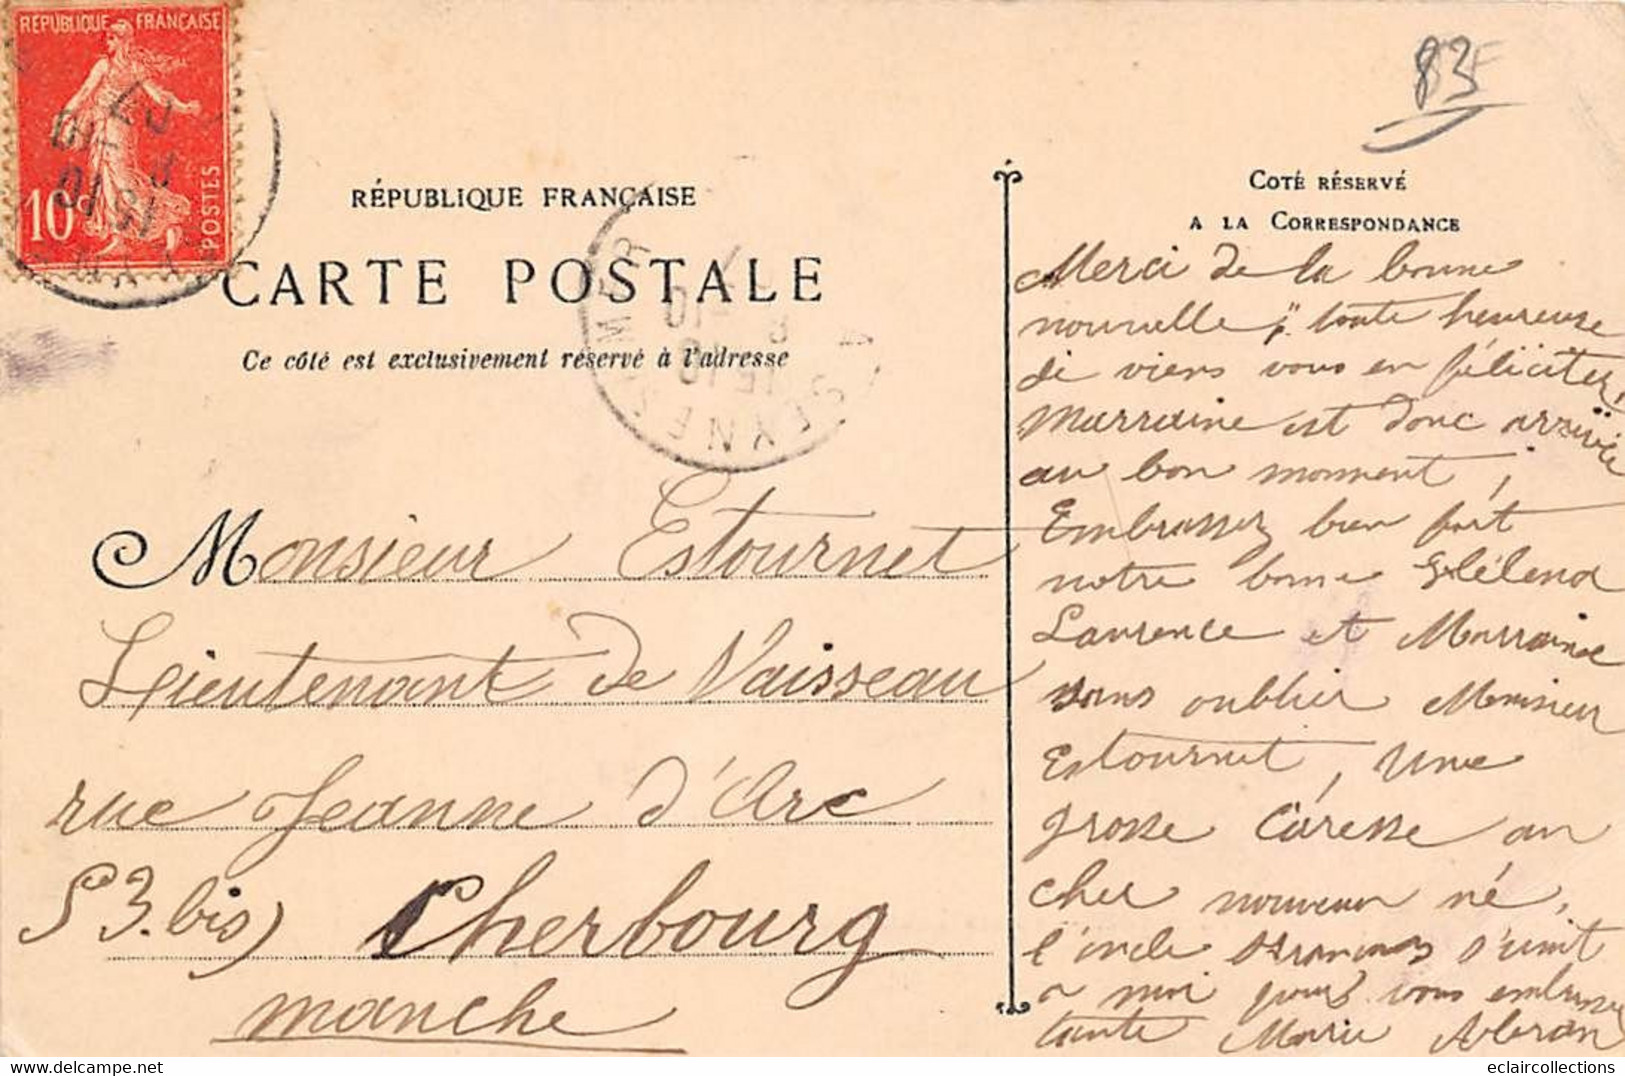 RÉPUBLIQUE FRANÇAISE
10 POSTES
83F
RÉPUBLIQUE FRANÇAISE
CARTE POSTALE
Ce côté est exclusivement réservé à l'adresse
LA SEYNE-SUR-MER
Monsieur Estournet
Lieutenant de Vaisseau
rue Jeanne d'Arc
53.bis) Cherbourg
manche
COTÉ RÉSERVÉ
A LA CORRESPONDANCE
Merci de la bonne
nouvelle, toute heureuse
je viens vous en féliciter,
Marraine est donc arrivée
au bon moment,
Embrassez bien fort
notre bonne Héléna
Laurence et Marraine
sans oublier Monsieur
Estournet, Une
grosse Caresse au
cher nouveau né,
l'oncle François s'unit
a moi pour vous embrasser
tante Marie
eclaircollections